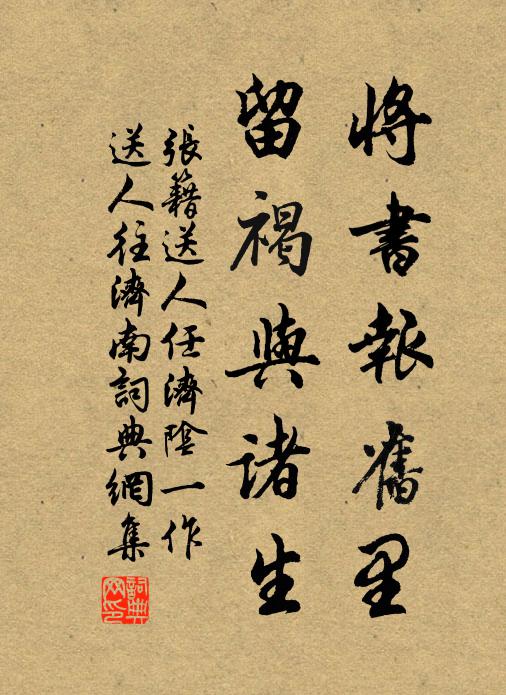 將書報舊里
留褐與諸生
張籍送人任濟陰一作
送人往濟南詞典網集
詞典网印